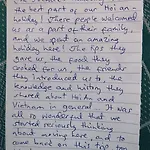 the best part of our Hoi an -
holiday! These people welcomed
us as a part of their family,
and we spent an amazing
holiday here! The tips they
gave us, the food they
cooked for us, the friends
they introduced us to, the
knowledge and history they
shared about Hoi an and
Vietnam in general. It was
all so wonderful that we
started seriously thinking
about moving here and to
come back on this trip too